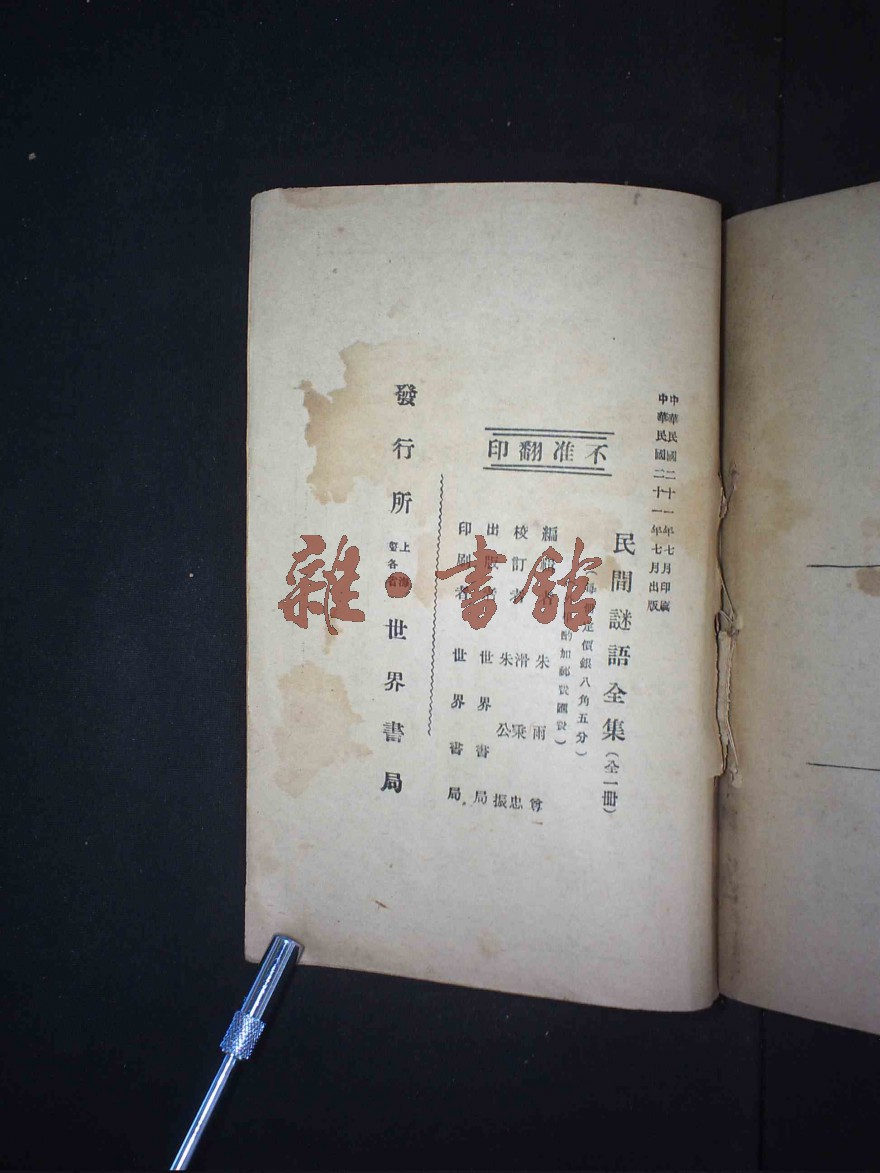 中華民國二十一年七月印刷
中華民國二十一年七月出版
民間謎語全集(全一册)
定價銀八角五分)
酌加郵費匯費)
不准翻印
編輯者 朱雨尊
校訂者 滑乘忠 朱公振
出版者 世界書局
印刷者 世界書局
發行所 上海曁各省 世界書局
雜·書館